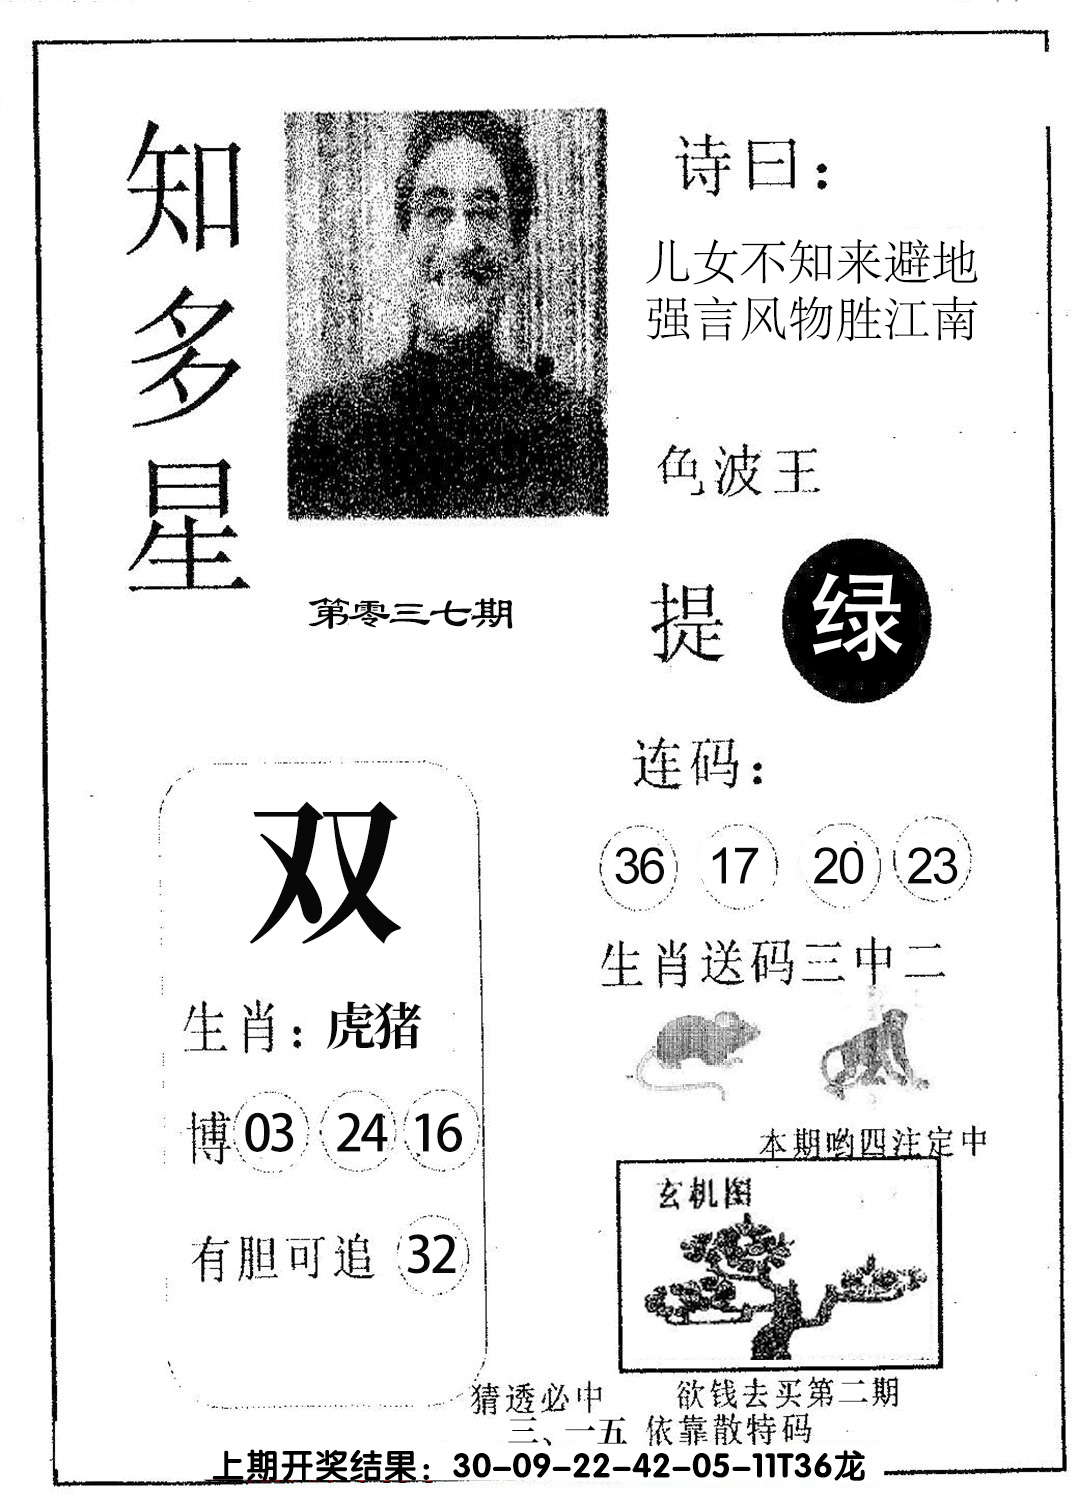 知多星
诗曰：
儿女不知来避地
强言风物胜江南
色波王
提 绿
第零三七期
连码：
36 17 20 23
生肖送码三中二
双
生肖：虎猪
博 03 24 16
有胆可追 32
本期哟四注定中
玄机图
猜透必中 欲钱去买第二期
三、一五 依靠散特码
上期开奖结果：30-09-22-42-05-11T36龙